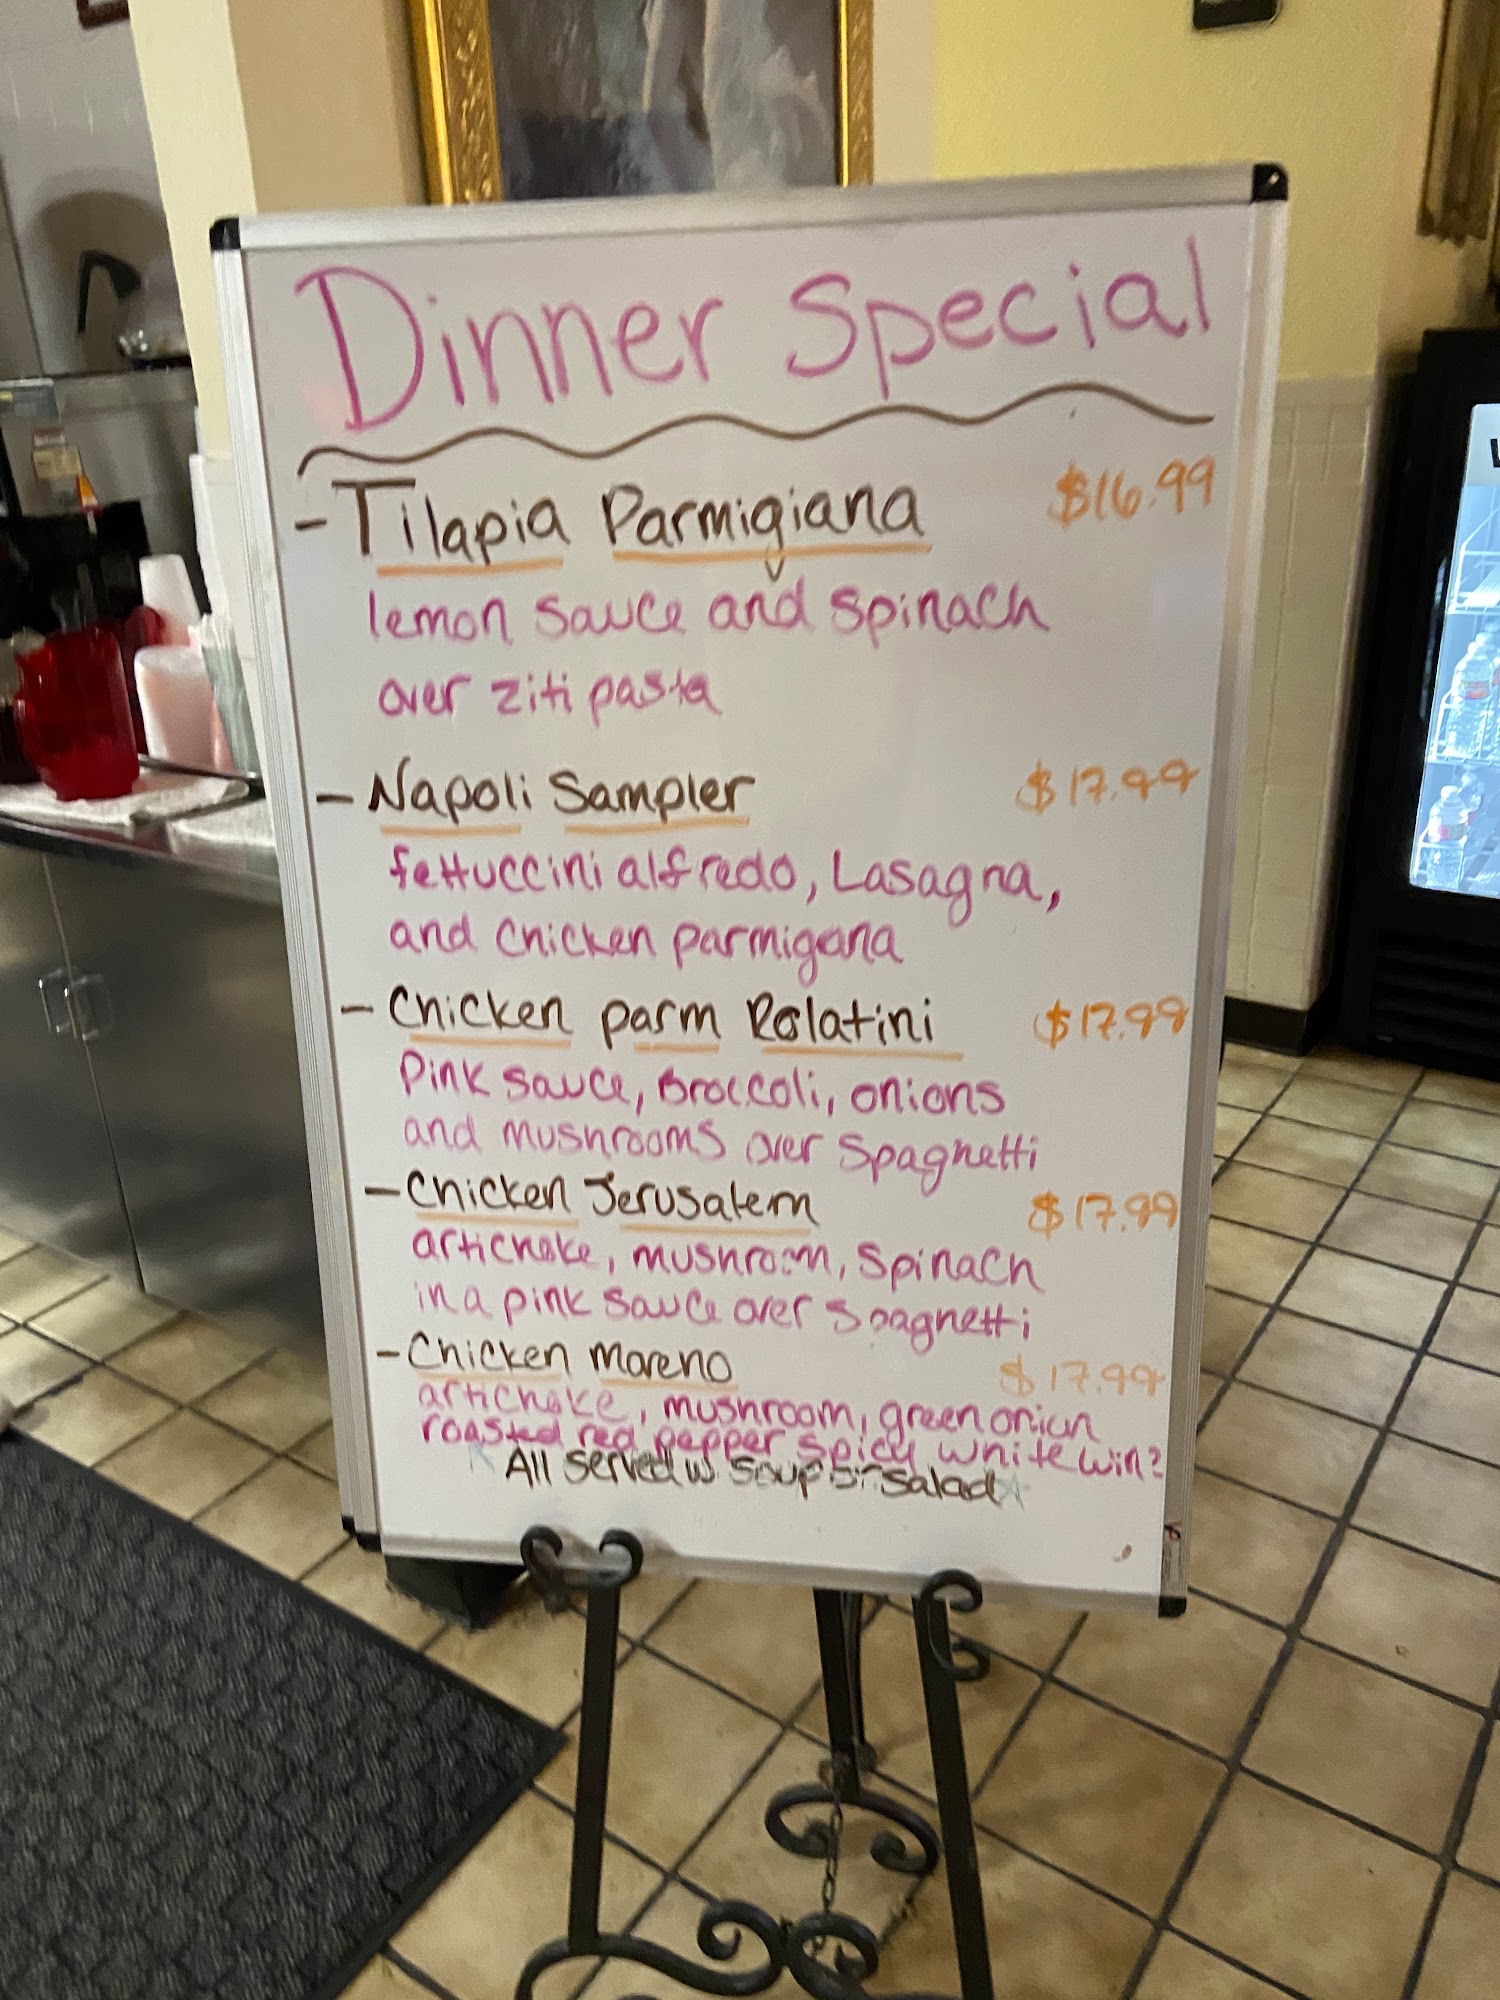 Dinner Special
- Tilapia Parmigiana $16.99
lemon sauce and spinach
over ziti pasta
- Napoli Sampler $17.99
fettuccini alfredo, Lasagna,
and chicken parmigana
- Chicken parm Rolatini $17.99
Pink sauce, Broccoli, onions
and mushrooms over Spaghetti
- Chicken Jerusalem $17.99
artichoke, mushroom, Spinach
in a pink sauce over Spaghetti
- Chicken Moreno $17.99
artichoke, mushroom, green onion
roasted red pepper spicy white wine
All served w soup or salad